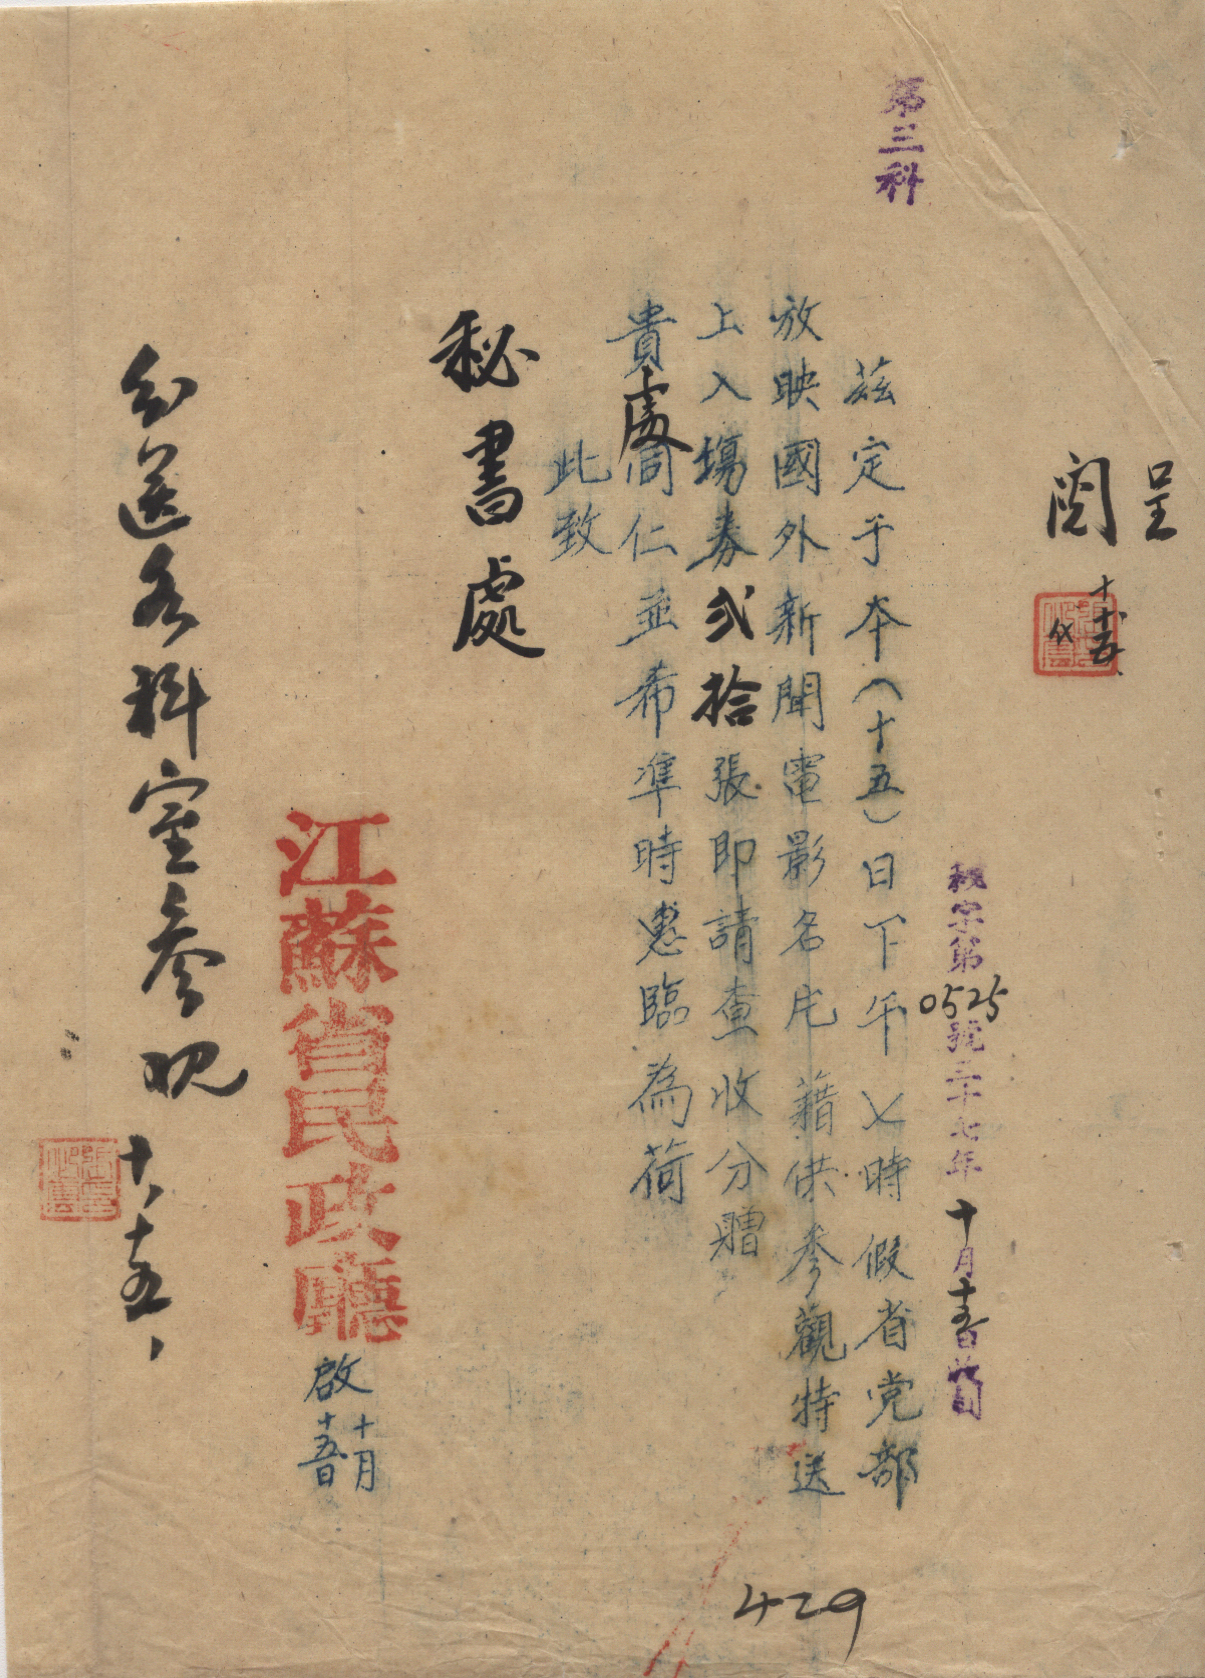 第三科
呈
閱
十、十五
秘字第0525號三十七年十月十五日收文
茲定于本(十五)日下午七時假省党部
放映國外新聞電影名片藉供參觀特送
上入場券弍拾張即請查收分贈
貴處同仁並希準時惠臨為荷
此致
秘書處
江蘇省民政廳
啟
十月
十五日
分送各科室參觀
十、十五、
429